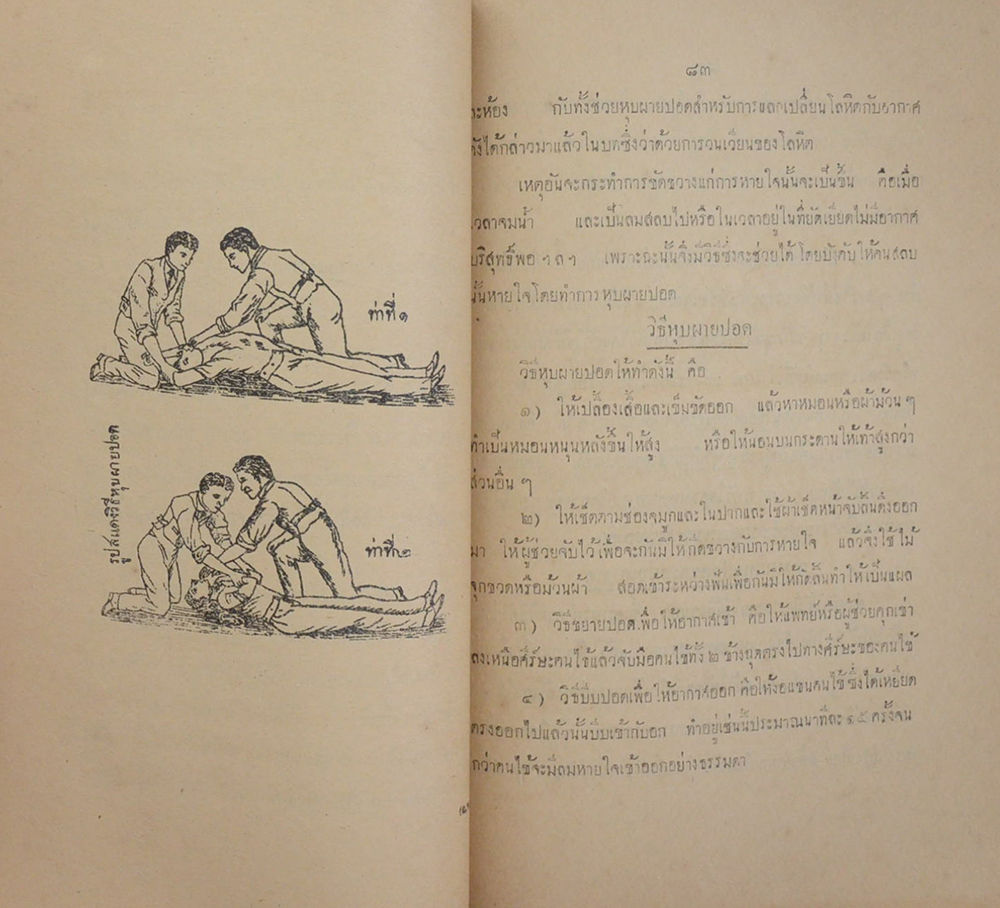 ท่าที่ ๑
รูปแสดงวิธีหุบผายปอด
ท่าที่ ๒
๘๓
ะห้อง กับทั้งช่วยหุบผายปอดสำหรับการแลกเปลี่ยนโลหิตกับอากาศ
ดังได้กล่าวมาแล้วในบทซึ่งว่าด้วยการวนเวียนของโลหิต
เหตุอันจะกระทำการขัดขวางแก่การหายใจนั้นจะเป็นขึ้น คือเมื่อ
เวลาจมน้ำ และเป็นลมสลบไปหรือในเวลาอยู่ในที่ยัดเยียดไม่มีอากาศ
บริสุทธิ์พอ ฯลฯ เพราะฉะนั้นจึงมีวิธีซึ่งจะช่วยได้ โดยบังคับให้คนสลบ
นั้นหายใจโดยทำการหุบผายปอด
วิธีหุบผายปอด
วิธีหุบผายปอดให้ทำดังนี้ คือ
๑) ให้เปลื้องเสื้อและเข็มขัดออก แล้วหาหมอนหรือผ้าม้วนๆ
ทำเป็นหมอนหนุนหลังขึ้นให้สูง หรือให้นอนบนกระดานให้เท้าสูงกว่า
ส่วนอื่น ๆ
๒) ให้เช็ดตามช่องจมูกและในปากและใช้ผ้าเช็ดหน้าจับลิ้นดึงออก
มา ให้ผู้ช่วยจับไว้เพื่อจะกันมิให้กีดขวางกับการหายใจ แล้วจึงใช้ไม้
จุกขวดหรือม้วนผ้า สอดเข้าระหว่างฟันเพื่อกันมิให้กัดลิ้นทำให้เป็นแผล
๓) วิธีขยายปอดเพื่อให้อากาศเข้า คือให้แพทย์หรือผู้ช่วยคุกเข่า
ลงเหนือศีร์ษะคนไข้แล้วจับมือคนไข้ทั้ง ๒ ข้างฉุดตรงไปทางศีร์ษะของคนไข้
๔) วิธีบีบปอดเพื่อให้อากาศออก คือให้งอแขนคนไข้ซึ่งได้เหยียด
ตรงออกไปแล้วนั้นบีบเข้ากับอก ทำอยู่เช่นนี้ประมาณนาทีละ ๑๕ ครั้งจน
กว่าคนไข้จะมีลมหายใจเข้าออกอย่างธรรมดา